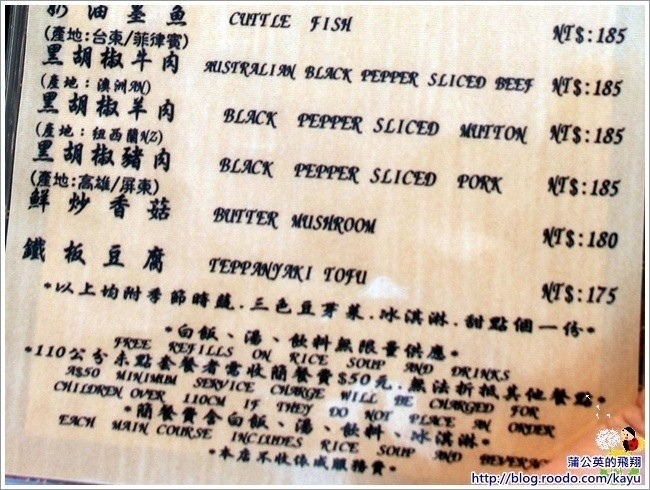 奶油墨魚 CUTTLE FISH NT$:185
(產地:台東/菲律賓)
黑胡椒牛肉 AUSTRALIAN BLACK PEPPER SLICED BEEF NT$:185
(產地:澳洲AN)
黑胡椒羊肉 BLACK PEPPER SLICED MUTTON NT$:185
(產地:紐西蘭NZ)
黑胡椒豬肉 BLACK PEPPER SLICED PORK NT$:185
(產地:高雄/屏東)
鮮炒香菇 BUTTER MUSHROOM NT$:180
鐵板豆腐 TEPPANYAKI TOFU NT$:175
*以上均附季節時蔬.三色豆芽菜.冰淇淋.甜點個一份*
*白飯、湯、飲料無限量供應*
FREE REFILLS ON RICE SOUP AND DRINKS
*110公分未點套餐者需收簡餐費$50元.無法折抵其他餐點*
A$50 MINIMUM SERVICE CHARGE WILL BE CHARGED FOR
CHILDREN OVER 110CM IF THEY DO NOT PLACE AN ORDER
*簡餐費含白飯、湯、飲料、冰淇淋*
EACH MAIN COURSE INCLUDES RICE SOUP AND BEVERA
*本店不收依成服務費*
蒲公英的飛翔
http://blog.roodo.com/kayu